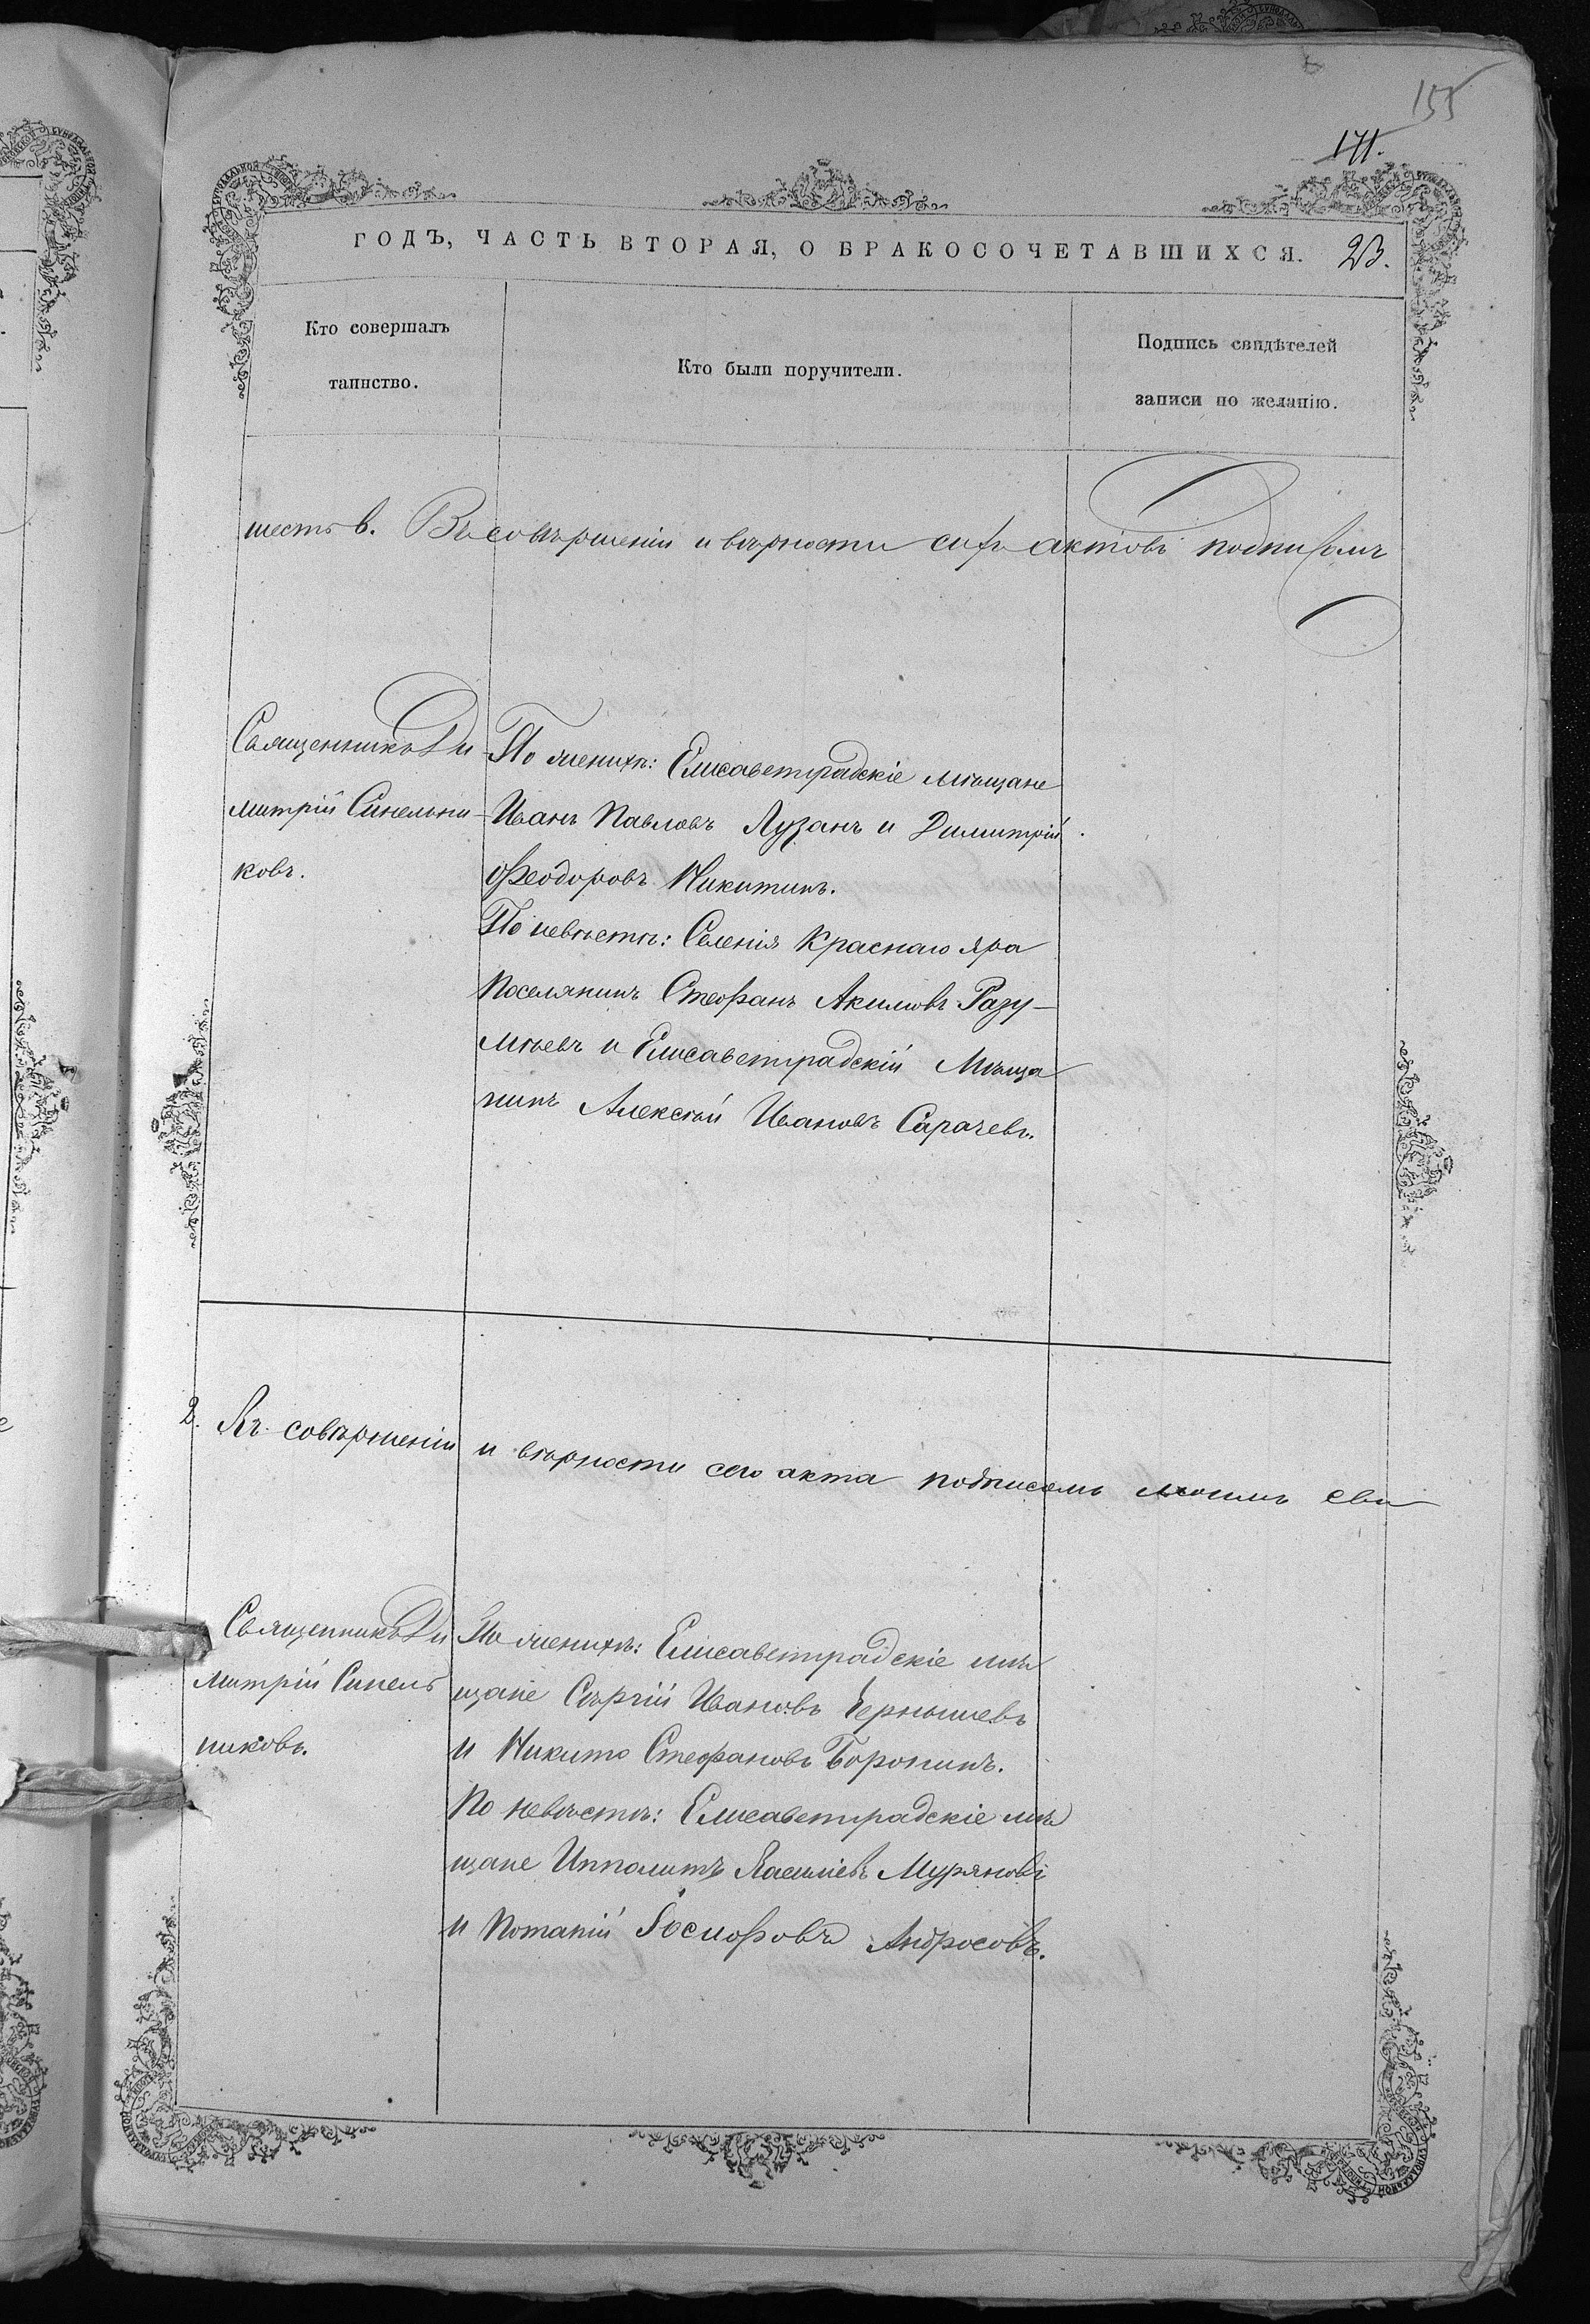 155
171.
ГОДЪ, ЧАСТЬ ВТОРАЯ, О БРАКОСОЧЕТАВШИХСЯ. 23.
Кто совершалъ
таинство.
Кто были поручители.
Подпись свидѣтелей
записи по желанію.
шесть в. Въ совѣршеніи и вѣрности сихъ актовъ подписомъ
Священникъ Ди
митрій Синельни-
ковъ.
По женихѣ: Елисаветградскіе мѣщане
Иванъ Павловъ Лузанъ и Димитрій
Ѳеодоровъ Никитинъ.
По невѣстѣ: Селенія Краснаго Яра
Поселянинъ Стефанъ Акимовъ Разу-
мѣевъ и Елисаветградскій Мѣща
нинъ Алексѣй Ивановъ Сарачевъ.
2. Въ совѣршеніи и вѣрности сего акта подписомъ моимъ сви
Священникъ Ди
митрій Синель
никовъ.
По женихѣ: Елисаветградскіе мѣ
щане Сѣргій Ивановъ Чернышевъ
и Никита Стефановъ Боронинъ.
По невѣстѣ: Елисаветградскіе мѣ
щане Ипполитъ Василіевъ Муряновъ
и Потапій Іосифовъ Андросовъ.